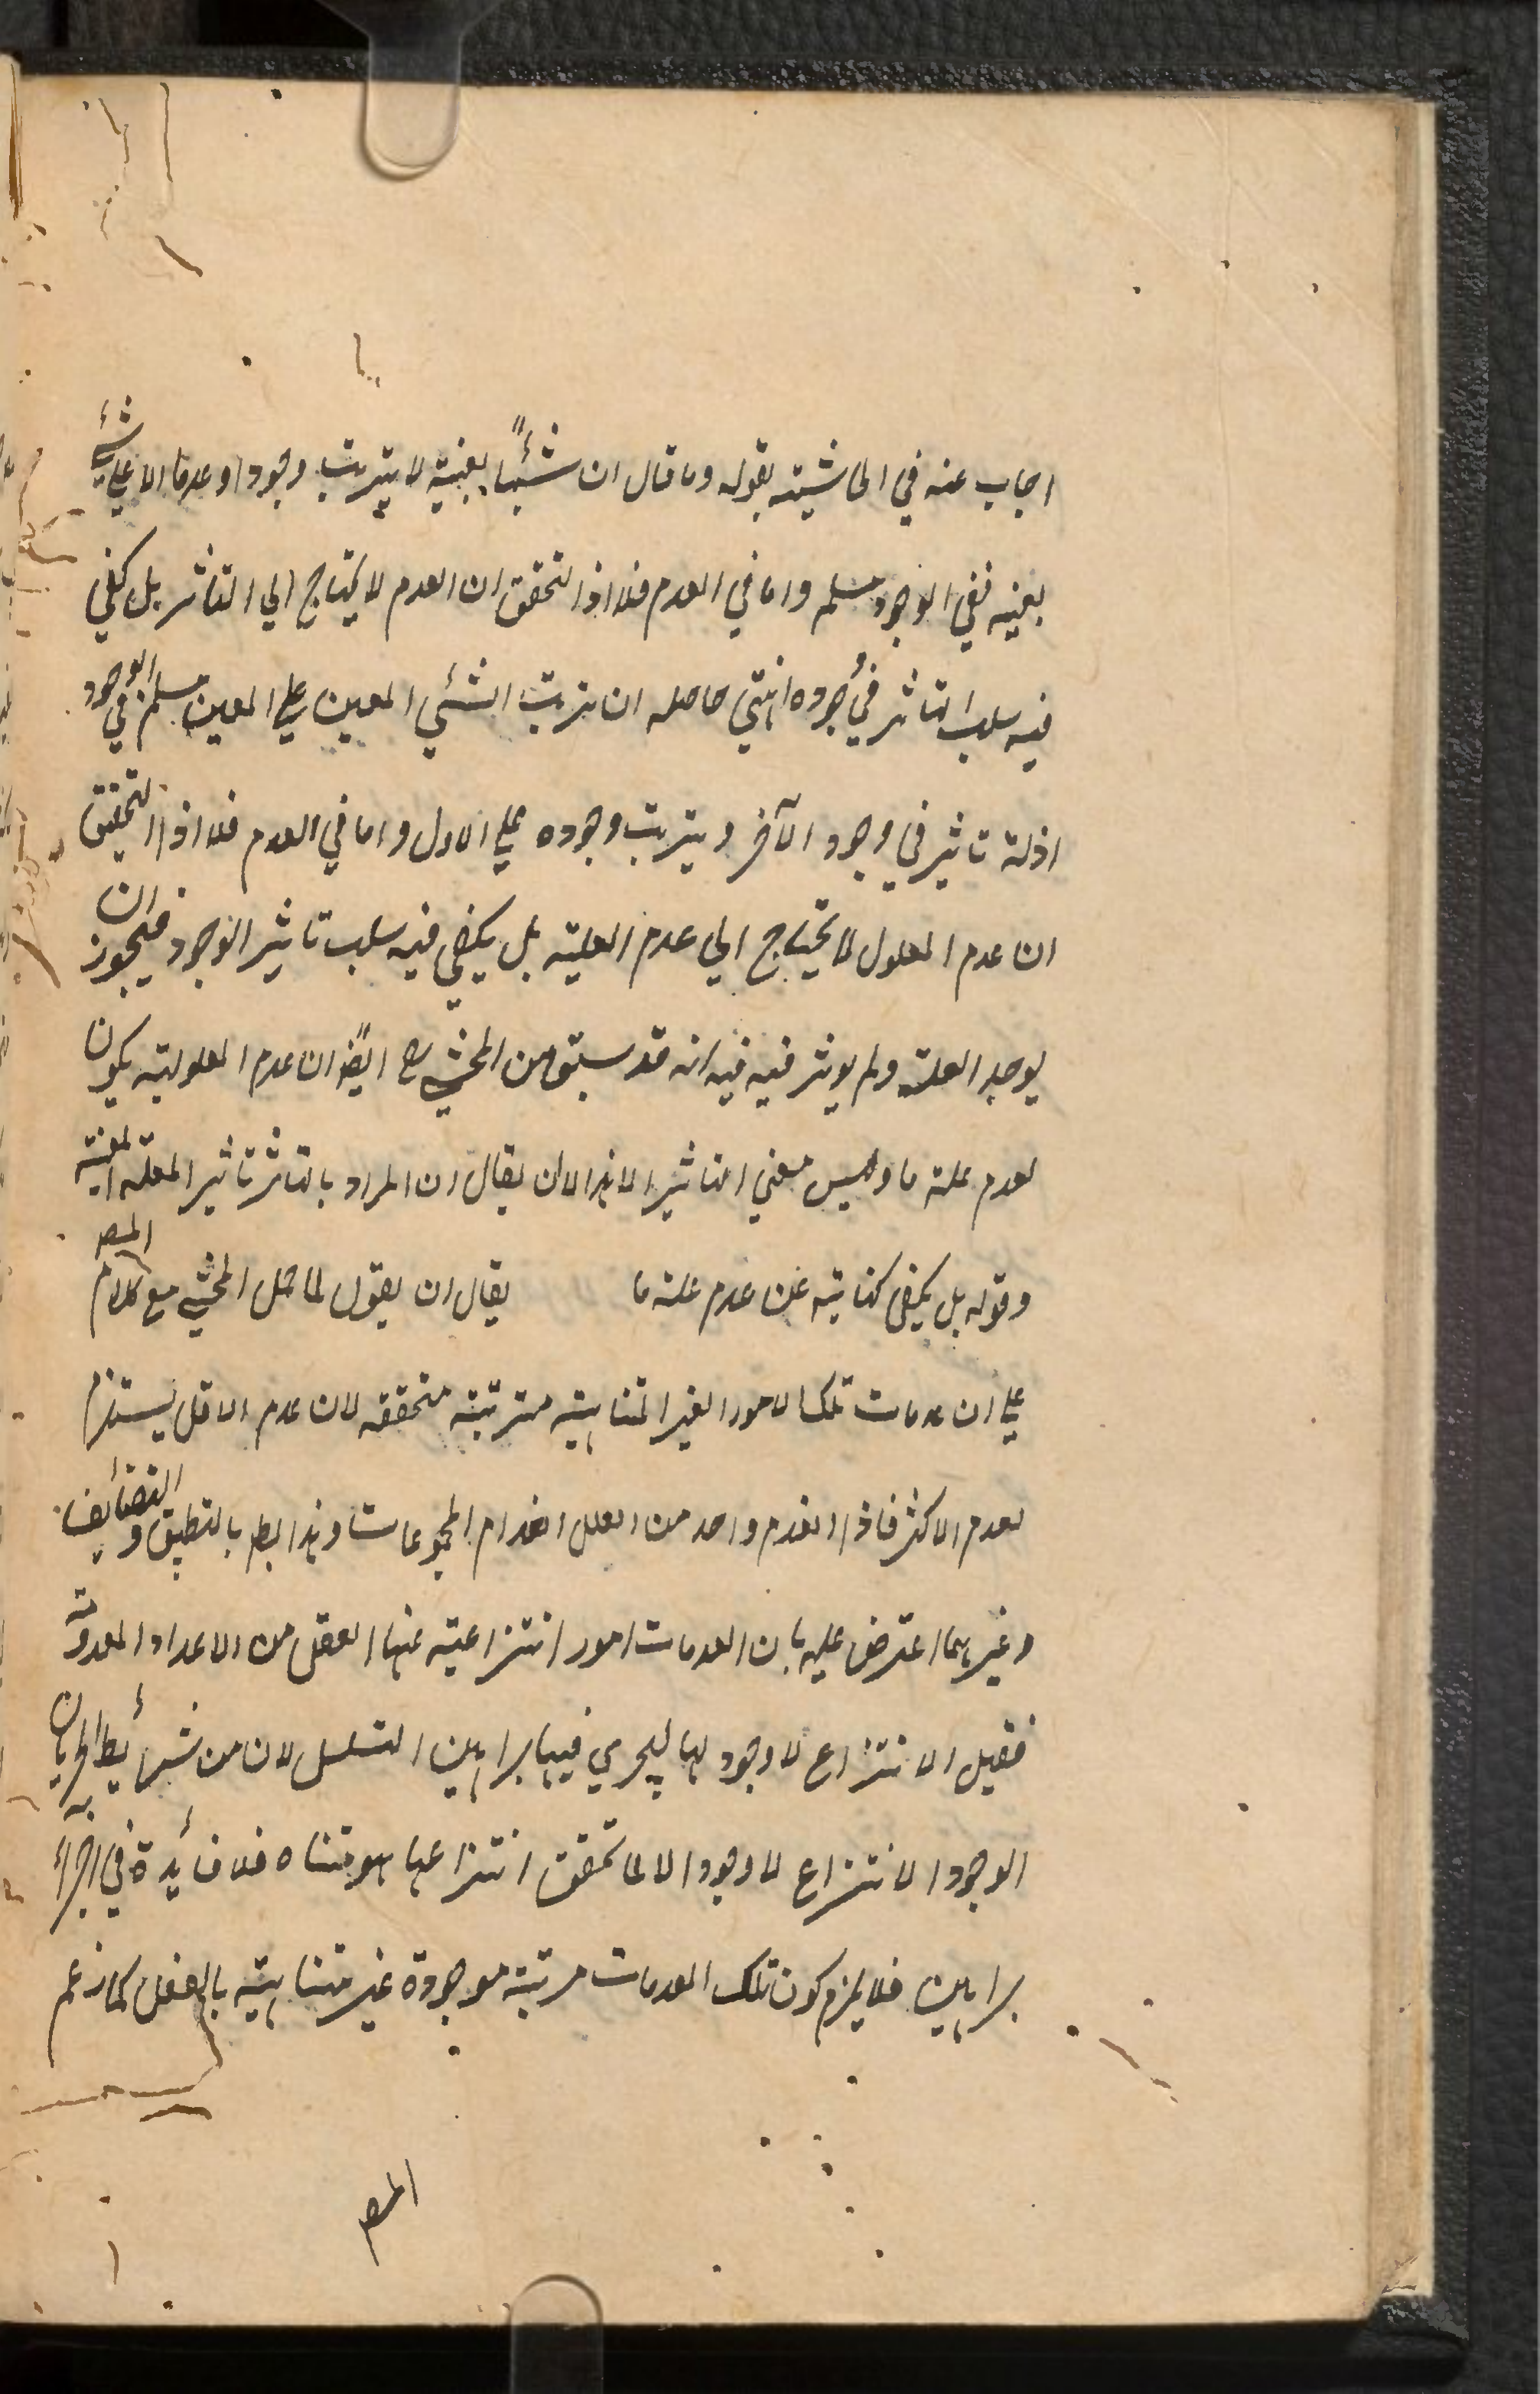 اجاب عنه في الحاشية بقوله وما قال ان شيئًا بعينه لا يترتب وجودا وعدما الا على شئ
بعينه ففي الوجود مسلم واما في العدم فلا اذ التحقق ان العدم لا يحتاج الي التاثر بل يكفي
فيه سلب التاثر في وجوده انتهي حاصله ان ترتب الشئي المعين علي المعين مسلم في الوجود
اذله تاثير في وجود الآخر ويترتب وجوده علي الاول واما في العدم فلا اذا التحقق
ان عدم المعلول لا يحتاج الي عدم العلية بل يكفي فيه سلب تاثير الوجود فيجوز ان
يوجد العلة ولم يوثر فيه فيه انه قد سبق من المحشي رح ايضًا ان عدم المعلولية يكون
لعدم علة ما وليس معني التاثير الا هذا الا ان يقال ان المراد بالتاثر تاثير العلة المعينه
وقوله بل يكفي كناية عن عدم علة ما يقال ان يقول لما حمل المحشي مع كلام المصر
علي ان عدمات تلك الامور الغير المتناهية مترتبة متحققه لان عدم الاقل يستلزم
لعدم الاكثر فاذا انعدم واحد من العلل انعدام المجموعات وهذا بط بالتطبيق والتضائف
وغيرهما اعترض عليه بان العدمات امور انتزاعية عنها العقل من الاعداد المعدومة
فقيل الانتزاع لا وجود لها ليجري فيها براهين التسلسل لان من شرائط الجريان
الوجود الانتزاع لا وجود الا لما تحقق انتزاعها هو متناه فلا فائدة في اجراء
براهين فلا يلزم كون تلك العدمات مرتبة موجودة غير متناهية بالفعل كما زعم
المصر